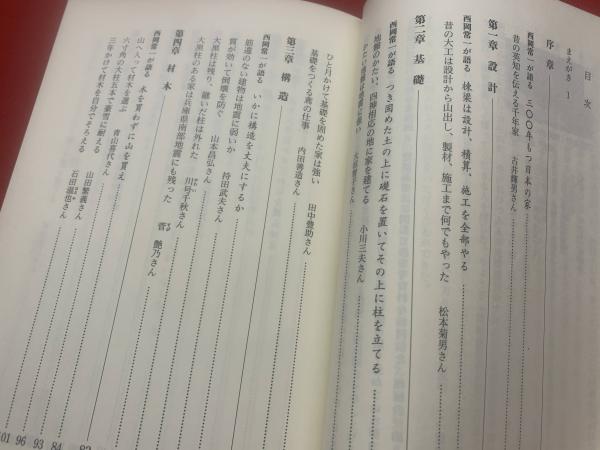 目次
まえがき 1
序章
西岡常一が語る 三〇〇年もつ日本の家
昔の英知を伝える千年家 古井輝男さん
第一章 設計
西岡常一が語る 棟梁は設計、積算、施工を全部やる
昔の大工は設計から山出し、製材、施工まで何でもやった 松本菊男さん
第二章 基礎
西岡常一が語る つき固めた土の上に礎石を置いてその上に柱を立てる
地盤のかたい、四神相応の地に家を建てる 小川三夫さん
ひと月かけて基礎を固めた家は強い 田中豊助さん
基礎をつくる鳶の仕事 内田善造さん
第三章 構造
西岡常一が語る いかに構造を丈夫にするか
筋違のない建物は地震に弱いか 持田武夫さん
貫が効いて倒壊を防ぐ 山本昌弘さん
大黒柱は残り、継いだ柱は外れた 川�千秋さん
大黒柱のある家は兵庫県南部地震にも残った 菅 艶乃さん
第四章 材木
西岡常一が語る 木を買わずに山を買え
山へ入って材木を選ぶ 青山喜代さん
六寸角の大柱五本で豪雪に耐える 山田繁義さん
三年かけて材木を自分でそろえる 石田温也さん
84
93
96
101